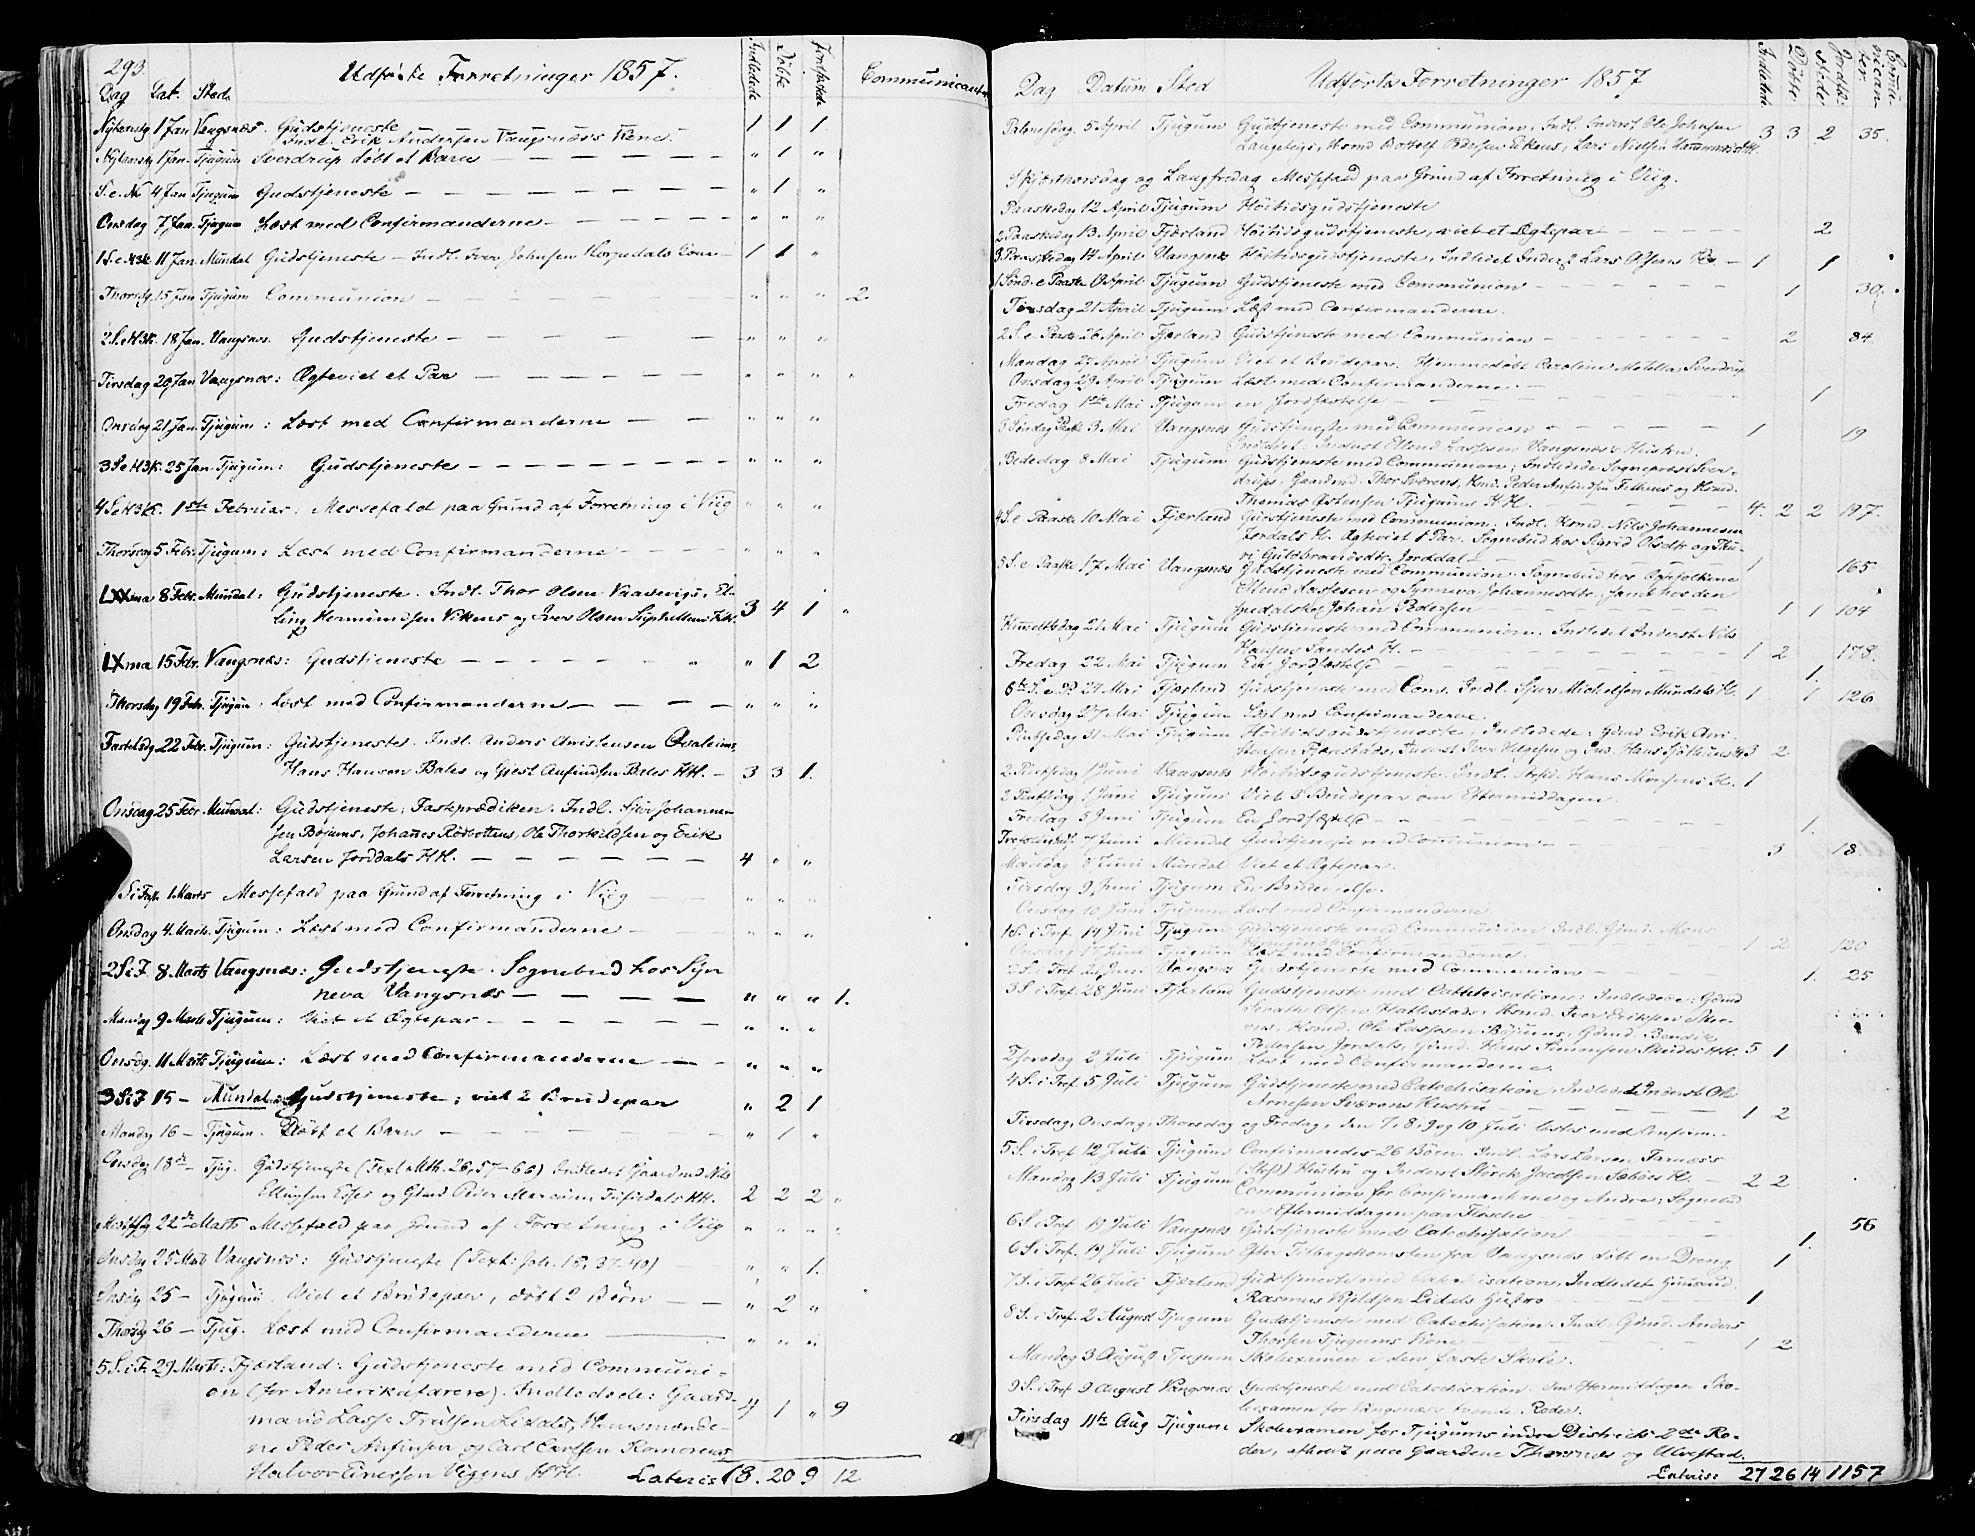 293.
Udførte Forretninger 1857.
Dag Dat. Sted. Indledede Døbte Jordfæstede Communicanter
Nytaarsdg 1 Jan Vangsnæs. Gudstjeneste 1 1 1.
Indl. Erik Andersen Vangsnæs's Kone.
Nytaarsdg 1 Jan. Tjugum Sverdrup døbt et Barn — " 1 "
S. e. Nr 4 Jan Tjugum Gudstjeneste — " 1 "
Onsdag 7 Jan. Tjugum Læst med Confirmanderne — " " "
1 S. e. H3K. 11 Jan. Mundal Gudstjeneste — Indl. Iver Johnsen Kone — 1 1 "
Thorsdg. 15 Jan Tjugum Communion — " " " 2.
2 S. e. H3K. 18 Jan. Vangsnæs. Gudstjeneste — " " "
Tirsdag 20 Jan Vangsnæs: Ægteviet et Par — " " "
Onsdag 21 Jan. Tjugum: Læst med Confirmanderne — " " "
3 S e H3K. 25 Jan. Tjugum: Gudstjeneste — " " "
4 S e H3K. 1ste Februar. Messefald paa Grund af Forretning i Viig " " "
Thorsdag 5 Febr. Tjugum: Læst med Confirmanderne — " " "
LXXma 8 Febr. Mundal: Gudstjeneste. Indl. Thor Olsen El-
ling Hermundsen Vikens og Iver Olsen HH. 3 4 1 "
LXma 15 Febr. Vangsnæs: Gudstjeneste — " 1 2
Thorsdag 19 Febr. Tjugum: Læst med Confirmanderne — " " "
Fastelsdg 22 Febr. Tjugum: Gudstjeneste. Indl. Anders Christensen
Hans Hansen Bales og Giest Anfindsen Bales HH. — 3 3 1.
Onsdag 25 Febr. Mundal: Gudstjeneste; Fasteprædiken. Indl. Johannes-
sen Bøjums, Johannes Ole Thorkildsen og Erik
Larsen Jorddals HH. — 4 " "
1 S i Fast. 1 Marts Messefald paa Grund af Forretning i Viig — " " "
Onsdag 4. Marts. Tjugum: Læst med Confirmanderne — " " "
2 S i F 8 Marts Vangsnæs: Gudstjeneste. Sognebud hos Syn
neva Vangsnæs — " " " 1.
Mandag 9 Marts Tjugum: Viet et Ægtepar — " " "
Onsdg. 11 Marts Tjugum: Læst med Confirmanderne — " " "
3 S i F 15 — Mundal: Gudstjeneste; viet 2 Brudepar " 2 1
Mandag 16 — Tjugum. Døbt et Barn — " 1 "
Onsdag 18de — Tjug. Gudstjeneste (Text Mth. 26, 57-66) Indledet Gaardmd. Nils
Ellingsen Esses og Gmd. Peder HH. 2 2 2 "
Midfstg 22de Marts Messefald paa Grund af Forretning i Viig " " " "
Onsdag 25 Marts Vangsnæs: Gudstjeneste (Text: Joh. 18, 37-40) — " " 1.
Onsdg 25 — Tjugum. Viet et Brudepar, døbt 2 Børn — " 2 "
Thorsdg 26 — Tjug. Læst med Confirmanderne — " " "
5. S. i F. 29 Marts: Fjærland: Gudstjeneste med Communi-
on (for Amerikafarere). Indledede: Gaard-
mand Lasse Lidals, Huusmænde- 4 1 " 9
ne Peder Anfinsen og Carl Carlsen Romorens,
Halvor Einersen Vigens HH. Lateris 18. 20 9 12.
Udførte Forretninger 1857
Dag Datum Sted Indledede Døbte Jordfæstede Communicanter
Palmesøng. 5 April Tjugum Gudstjeneste med Communion. Indl. Inderst. Ole Johnsen 3 3 2 35.
Hsmd Pedersen Lars Nielsen
Skjærthorsdag og Langfredag Messefald paa Grund af Forretning i Viig.
Paaskedag 12 April Tjugum Høitidsgudstjeneste
2 Paaskedag 13 April Fjærland Høitidsgudstjeneste, viet et Ægtepar — 2
3 Paaskedag 14 April Vangsnæs Høitidsgudstjeneste, Indledet Inderst Lars Olsens — 1 1
1 Sønd. e Paaske 19 April Tjugum Gudstjeneste med Communion — 1 30.
Tirsdag 21 April Tjugum Læst med Confirmanderne.
2 S. e. Paaske 26 April Fjærland Gudstjeneste med Communion — 2 84.
Mandag 27 April Tjugum Viet et Brudepar. Hjemmedøbt Caroline Sverdrup
Onsdag 29 April Tjugum Læst med Confirmanderne. —
Fredag 1ste Mai Tjugum en Jordfæstelse — 1
3 Søndag Paaske 3 Mai Vangsnæs Gudstjeneste med Communion — 1 19
Indledet: Inderst Ellend Lassesen Vangsnæs's Hustru.
Bededag 8 Mai Tjugum Gudstjeneste med Communion; Indledede Sognepræst Sver-
drups, Gaardmd. Thor Sværens, Hmd. Peder Anfindsen og Hsmd.
Thomas Østensen Tjugums HH. — 4. 2 2 197.
4 S. e. Paaske 10 Mai Fjærland Gudstjeneste med Communion. Indl. Hsmd. Nils Johannesen
Jordals H. Ægteviet 1 Par. Sognebud hos Sigrid Olsdtr og Thu-
ri Guldbrandsdtr. Jorddal —
5 S. e. Paaske 17 Mai Vangsnæs Gudstjeneste med Communion. Sognebud hos 1 165
Ellend Lassesen og Synneva Johannesdtr, samt hos den
spedalske Johan Pedersen — 1 1 104
Himmelfdag 21 Mai Tjugum Gudstjeneste med Communion. Indledet Inderst Nils
Hansen H. — 1 2 178.
Fredag 22 Mai Tjugum En Jordfæstelse — 1.
6te S. e. P 24 Mai Fjærland Gudstjeneste med Com. Indl. Michelsen Mundals H. 1 1 126
Onsdag 27 Mai Tjugum Læst med Confirmanderne.
Pintsedag 31 Mai Tjugum Høitidsgudstjeneste, Indledede: Gmd Erik
Inderst Iver Helgesen og Ind. Hans 3 2
2 Pintsedag 1 Juni Vangsnæs Høitidsgudstjeneste. Indl. Hans H. 1
2 Pintsedag 1 Juni Tjugum Viet 2 Brudepar om Eftermiddagen.
Fredag 5 Juni Tjugum En Jordfæstelse — 1.
Trefoldhedss. 7 Juni Mundal Gudstjeneste med Communion — 3 18.
Mandag 8 Juni Mundal Viet et Ægtepar.
Tirsdag 9 Juni Tjugum En Brudevielse.
Onsdag 10 Juni Tjugum Læst med Confirmanderne.
1 S. i Tref. 14 Juni Tjugum Gudstjeneste med Communion. Indl. Gmd. Mons
1 2 120
Onsdag 17 Juni Tjugum Læst med Confirmanderne.
2 S. i Tref. 21 Juni Vangsnæs Gudstjeneste med Communion — 1. 25
3 S. i Tref. 28 Juni Fjærland Gudstjeneste med Catechisation: Indledede: Gmd
Olsen Hatlestads, Hsmd. Iver Eriksen
Hsmd. Ole Lassesen Bøjums, Gmd. Bendik
Pedersen Jordals, Gmd. Hans Simonsen HH. 5 1
Thorsdag 2 Juli Tjugum Læst med Confirmanderne.
4 S. i Tref. 5 Juli Tjugum Gudstjeneste med Catechisation, Indledet Inderst Ole
Arnesen Sværens Hustru — 1 2
Tirsdag, Onsdag, Thorsdag og Fredag, den 7, 8, 9 og 10 Juli læstes med Confirm. —
5. S. i Tref. 12 Juli Tjugum Confirmeredes 26 Børn. Indl. Lars Larsen Farnæs's
(Stfd) Hustru og Inderst Jacobsen Sæbøes H. — 2 2
Mandag 13 Juli Tjugum Communion for Confirmanterne og Andre; Sognebud
om Eftermiddagen paa — 56
6 S. i Tref 19 Juli Vangsnæs Gudstjeneste med Catechisation — 1.
6 S. i Tref. 19 Juli Tjugum Efter Tilbagekomsten fra Vangsnæs døbt en Dreng. 1
7 S. i Tref 26 Juli Fjærland Gudstjeneste med Catechisation, Indledet
Rasmus Lidals Hustro — 1
8 S. i Tref. 2 August Tjugum Gudstjeneste med Catechisation. Indl. Gmd. Anders
Thorsen Tjugums Kone — 1 2
Mandag 3 August Tjugum Skoleexamen i den faste Skole.
9 S. i Tref 9 August Vangsnæs Gudstjeneste med Catechisation. Om Eftermiddagen Sko-
leexamen for Vangsnæs's tvende Roder.
Tirsdag 11te Aug Tjugum Skoleexamen for Tjugums indre Districts 2de Ro-
der, afholdt paa Gaardene Thorsnæs og Ulvestad.
Lateris: 27 26 14 1157